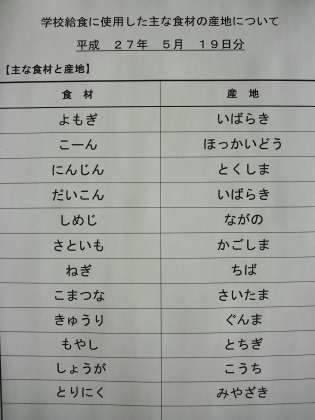 学校給食に使用した主な食材の産地について
平成　２７年　５月　１９日分
【主な食材と産地】
食　材　産　地
よもぎ　いばらき
こーん　ほっかいどう
にんじん　とくしま
だいこん　いばらき
しめじ　ながの
さといも　かごしま
ねぎ　ちば
こまつな　さいたま
きゅうり　ぐんま
もやし　とちぎ
しょうが　こうち
とりにく　みやざき